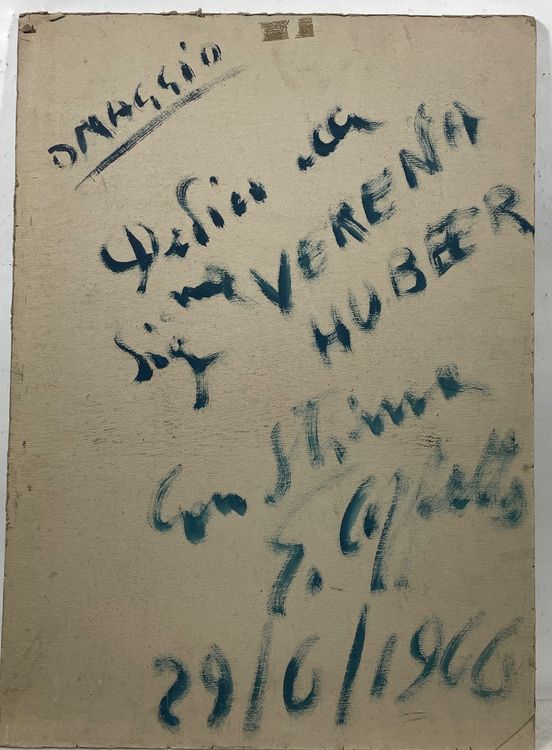 OMAGGIO
Dedico alla
Sig.na VERENA
HUBER
Con Stima
29/6/1966